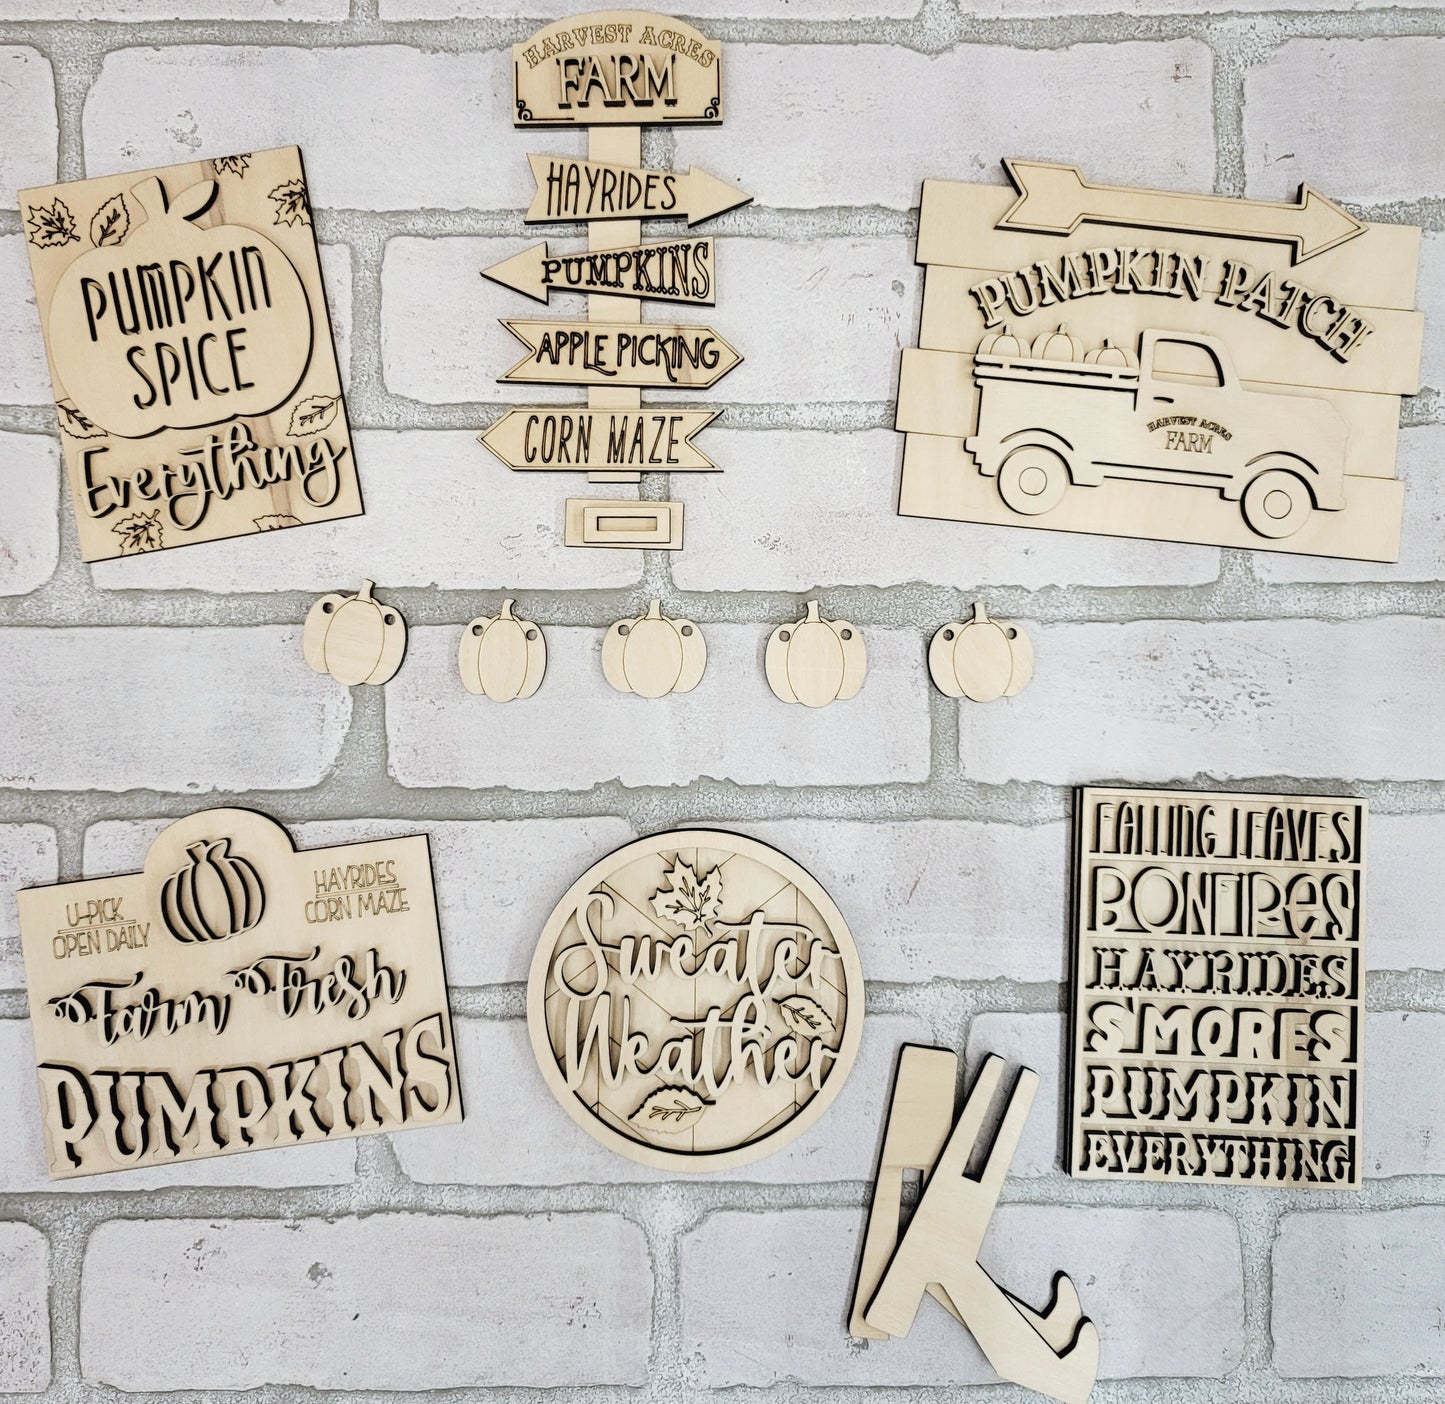 HARVEST ACRES
FARM
HAYRIDES
PUMPKINS
APPLE PICKING
CORN MAZE
PUMPKIN
SPICE
Everything
PUMPKIN PATCH
HARVEST ACRES
FARM
U-PICK
OPEN DAILY
HAYRIDES
CORN MAZE
Farm Fresh
PUMPKINS
Sweater
Weather
FALLING LEAVES
BONFIReS
HAYRIDES
S'MORES
PUMPKIN
EVERYTHING